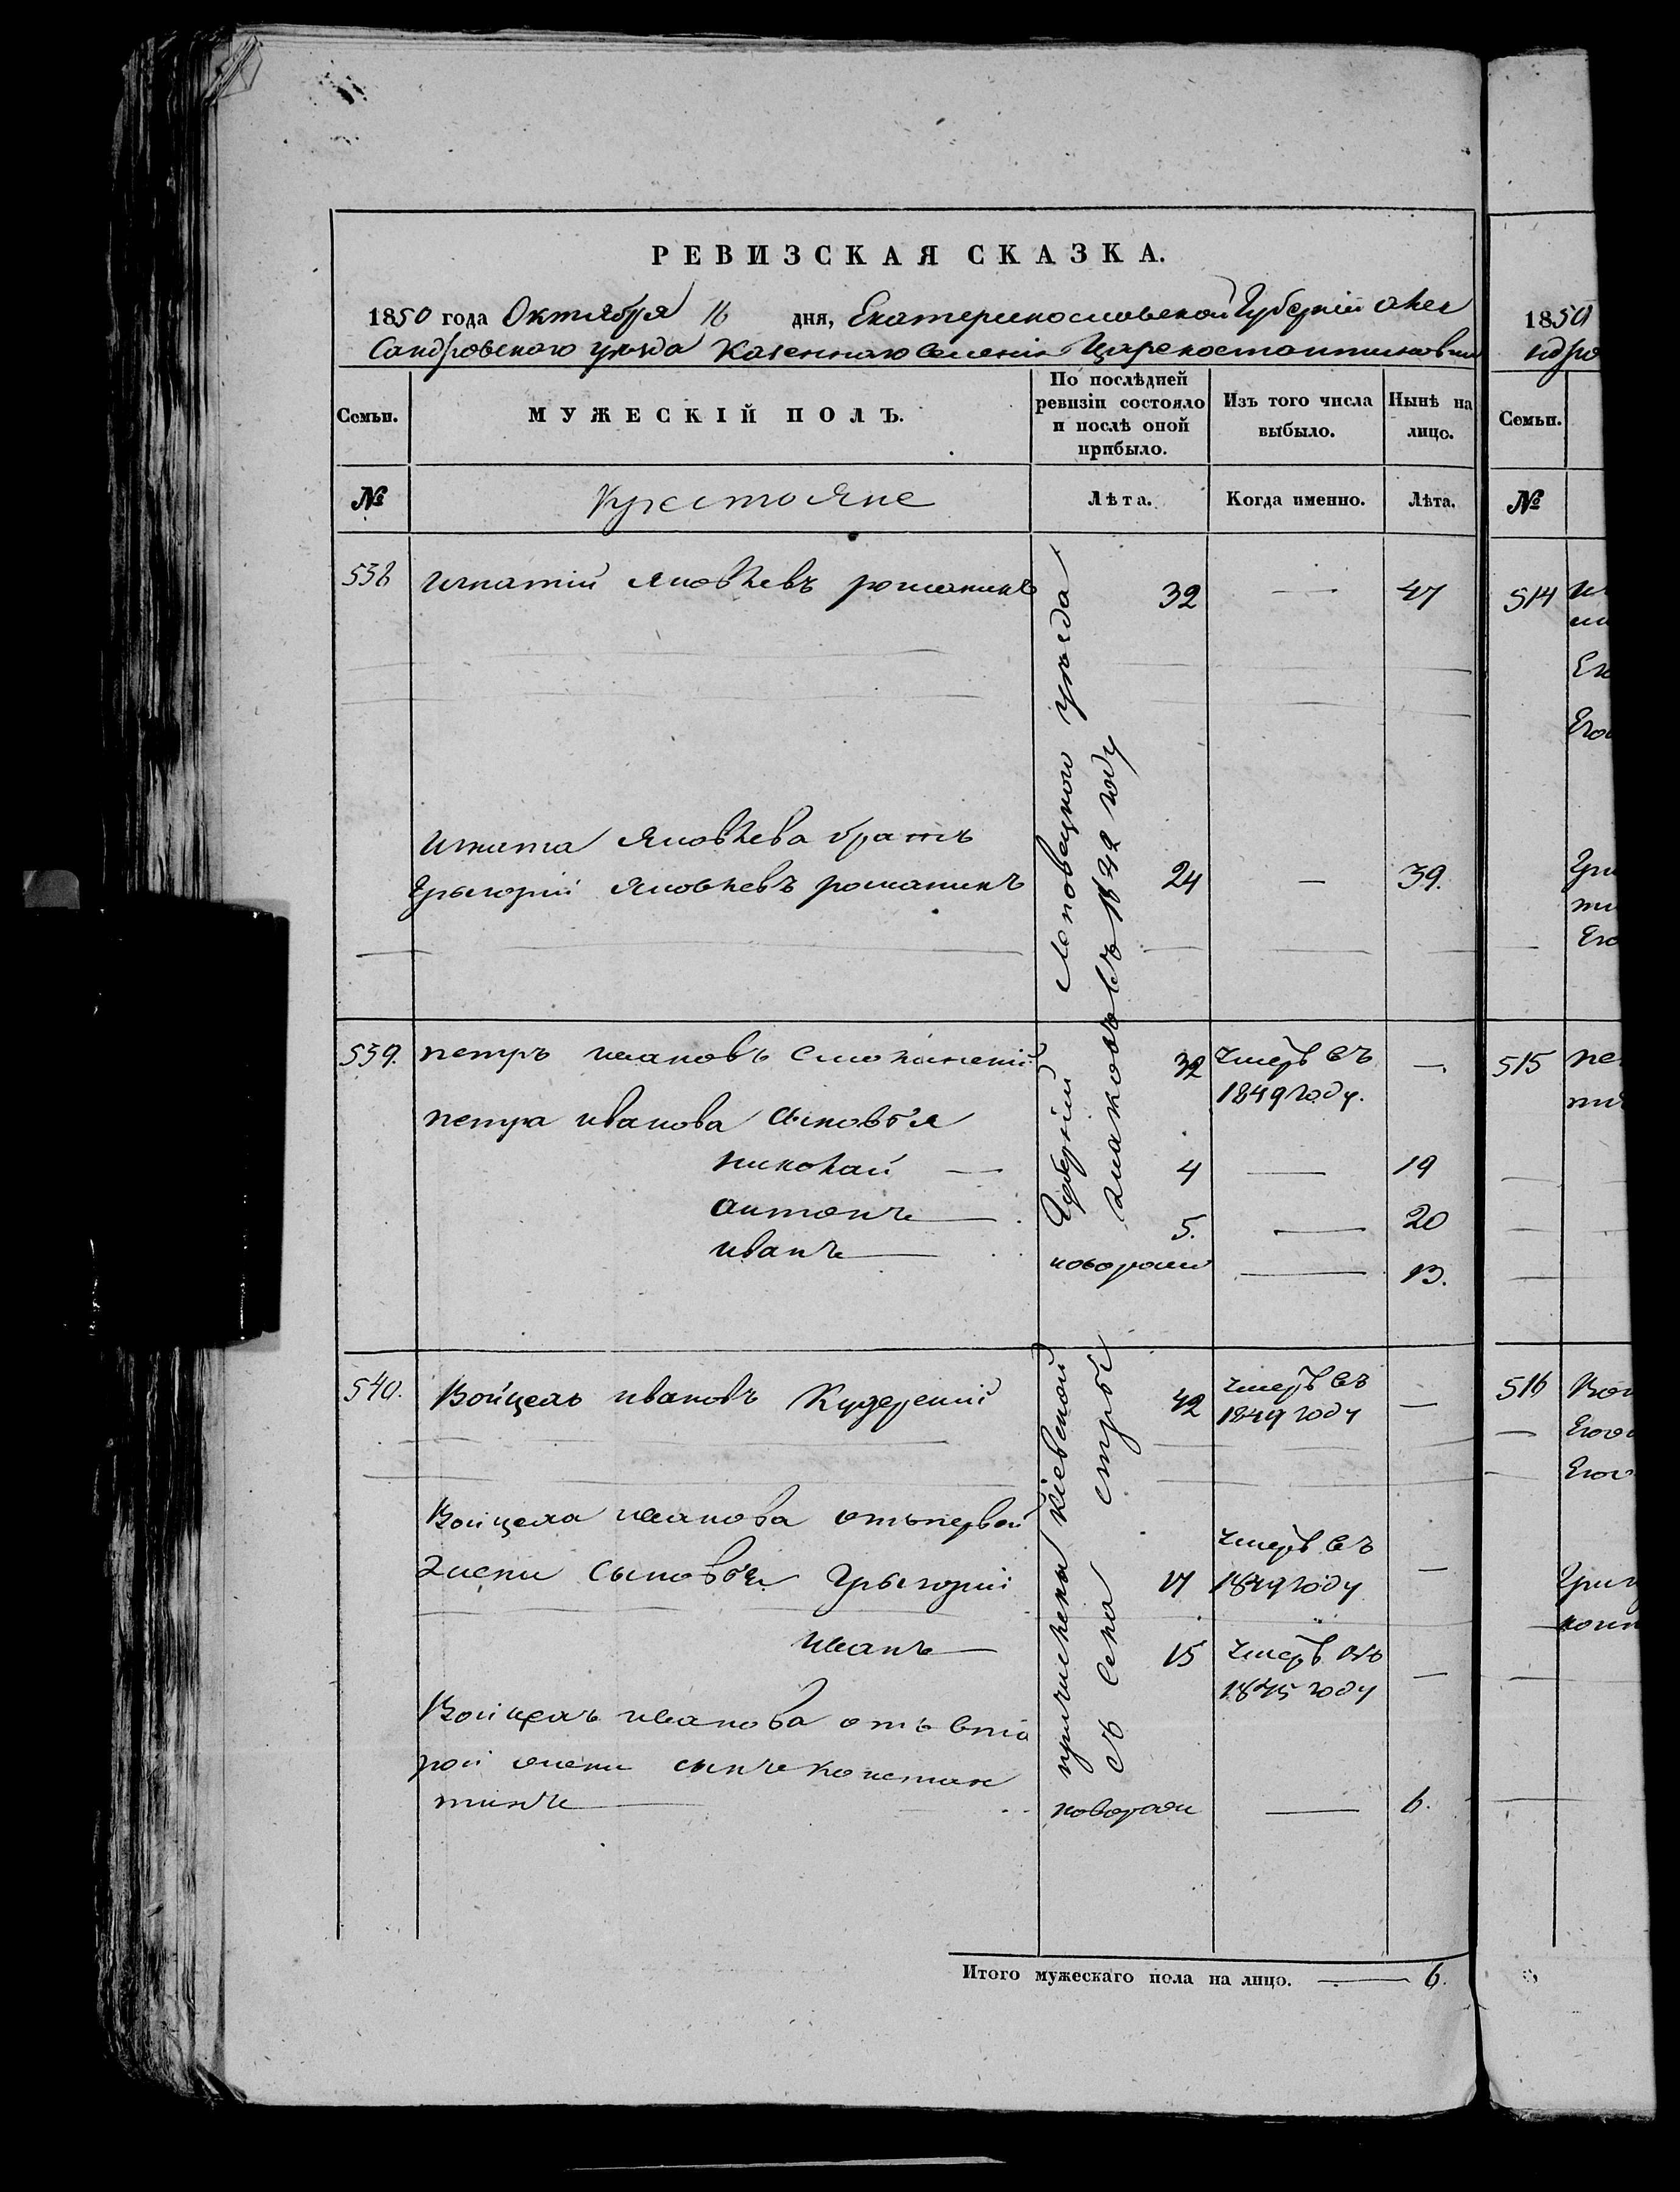 РЕВИЗСКАЯ СКАЗКА.
1850 года Октября 16 дня, Екатеринославской Губерніи Алек
сандровскаго уезда Казеннаго Селенія Цареконстантиновки
Семьи.
МУЖЕСКІЙ ПОЛЪ.
По послѣдней ревизіи состояло и послѣ оной прибыло.
Изъ того числа выбыло.
Нынѣ на лицо.
№
Крестояне
Лѣта.
Когда именно.
Лѣта.
538 игнатій яковлевъ романинъ 32 — 47
игната яковлева братъ
Грыгорій яковлевъ романинъ 24 — 39.
539. петръ ивановъ 32 умеръ въ 1849 году. —
петра иванова сыновья
николай — 4 — 19
антонъ — 5. — 20
иванъ — новорож — 13.
540. Войцехъ ивановъ 42 умеръ въ 1849 году —
Войцеха иванова отъ первой
жены сыновья Грыгорій 17 умеръ въ 1849 году —
иванъ — 15 умеръ въ 1845 году —
Войцехъ иванова отъ вто
рой жены сынъ констан
тинъ — новорож — 6.
причислены кіевской Губерніи Липовецкого уезда
съ села въ 1842 году
Итого мужескаго пола на лицо. — 6.
1850
Семьи.
№
514
515
516